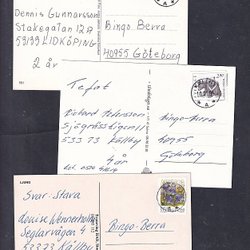 Dennis Gunnarsson
Stakegatan 12B
53199 LIDKÖPING
2 år
Bingo Berra
40955 Göteborg
Tefat
Rickard
533 73 Källby
4 år
Bingo-Berra
40955
Göteborg
Svar-Stava
Louise Wennerholm
Seglarvägen 4
53373 Källby
Bingo-Berra